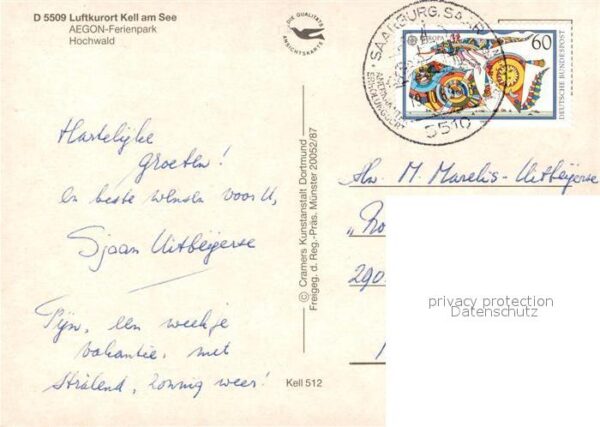 D 5509 Luftkurort Kell am See
AEGON-Ferienpark
Hochwald
DIE QUALITÄTS
ANSICHTSKARTE
SAARBURG, SAAR
5510
EUROPA
60
DEUTSCHE BUNDESPOST
Hartelijke
groeten!
en beste wensen voor U,
Sjaan Uitbeijerse
Fijn, een weekje
vakantie, met
Stralend, zonnig weer!
© Cramers Kunstanstalt Dortmund
Freigeg. d. Reg.-Präs. Münster 20052/87
Kell 512
M. Marelis-Uitbeijerse
290
privacy protection
Datenschutz